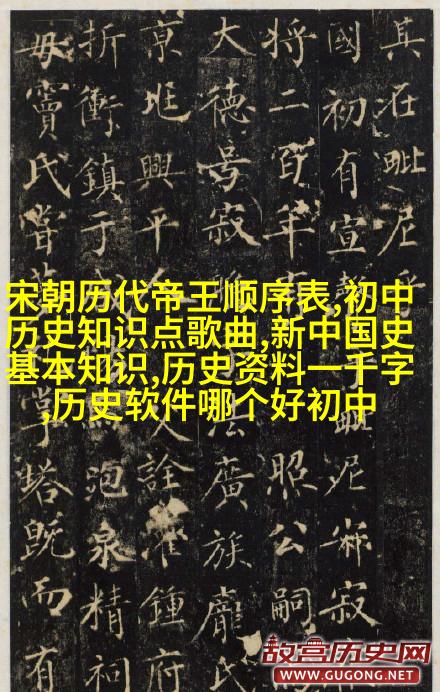 其在毗尼
國初有宣
毗尼亦寂
将二百年
照公嗣
大德号寂
法廣族龐氏
京兆興平人
詮
鍾府
折衝鎮于
泉精祠
毋竇氏嘗
掌塔既而有
宋朝历代帝王顺序表,初中
历史知识点歌曲,新中国史
基本知识,历史资料一千字
,历史软件哪个好初中
故宫历史网
WWW.GUGONG.NET